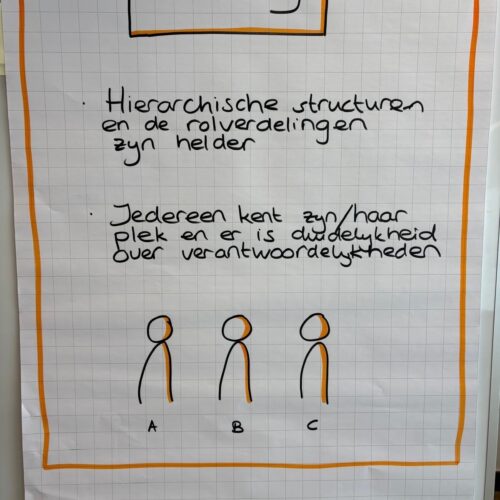 · Hierarchische structuren
en de rolverdelingen
zyn helder
· Iedereen kent zyn/haar
plek en er is duidelykheid
over verantwoordelykheden
A B C